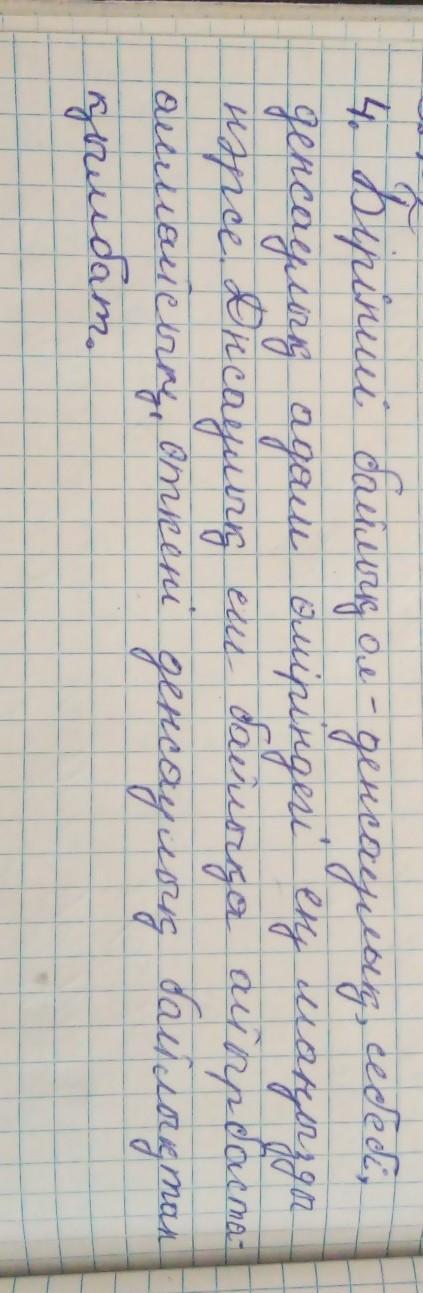 4. Бірінші байлық ол - денсаулық, себебі,
денсаулық адам өміріндегі ең маңызды
нәрсе. Днсаулық еш байлыққа айырбаста-
алмайсың, өткені денсаулық байлықтан
қымбат.